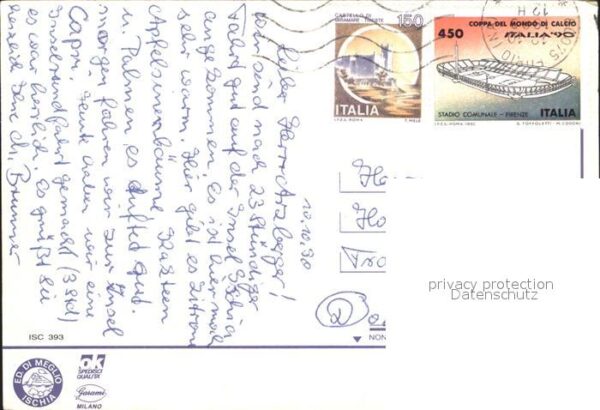 CASTELLO DI
MIRAMARE TRIESTE
150
ITALIA
I.P.Z.S. ROMA
T. MELE
COPPA DEL MONDO DI CALCIO
450 ITALIA '90
STADIO COMUNALE - FIRENZE ITALIA
10.10.90
Lieber Herr
wir sind nach 23 stündiger
Fahrt gut auf der Insel Ischia
angekommen. Es ist hier mal
sehr warm. Hier gibt es Zitronen
Apfelsinenbäume Kakteen
u. Palmen, es duftet gut.
morgen fahren wir zur Insel
Capri. Heute haben wir eine
Inselrundfahrt gemacht (3 Std)
es war herrlich. Es grüßt Sie
Brunner
Ho
Ho
Fro
D
privacy protection
Datenschutz
ISC 393
NON
ED. DI MEGLIO
ISCHIA
OK
SPEDISCI
QUALITÀ
Garami
MILANO